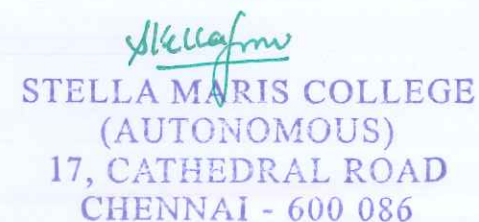 STELLA MARIS COLLEGE
(AUTONOMOUS)
17, CATHEDRAL ROAD
CHENNAI - 600 086